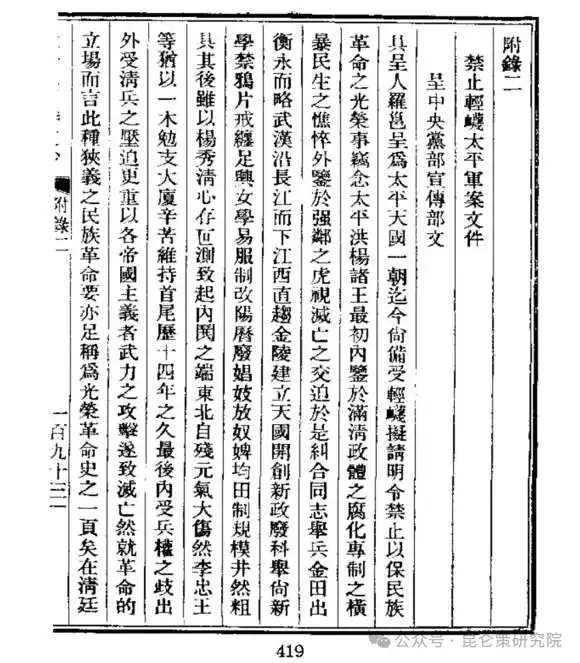 附錄二
禁止輕衊太平軍案文件
呈中央黨部宣傳部文
具呈人羅邕呈爲太平天國一朝迄今尙備受輕衊擬請明令禁止以保民族
革命之光榮事竊念太平洪楊諸王最初內鑒於滿淸政體之腐化專制之橫
暴民生之憔悴外鑒於强鄰之虎視滅亡之交迫於是糾合同志舉兵金田出
衡永而略武漢沿長江而下江西直趨金陵建立天國開創新政廢科舉尙新
學禁鴉片戒纏足興女學易服制改陽曆廢娼妓放奴婢均田制規模井然粗
具其後雖以楊秀淸心存叵測致起內鬨之端東北自殘元氣大傷然李忠王
等猶以一木勉支大廈辛苦維持首尾歷十四年之久最後內受兵權之歧出
外受淸兵之壓迫更重以各帝國主義者武力之攻擊遂致滅亡然就革命的
立場而言此種狹義之民族革命要亦足稱爲光榮革命史之一頁矣在淸廷
附錄二
一百九十三
419
公众号·昆仑策研究院